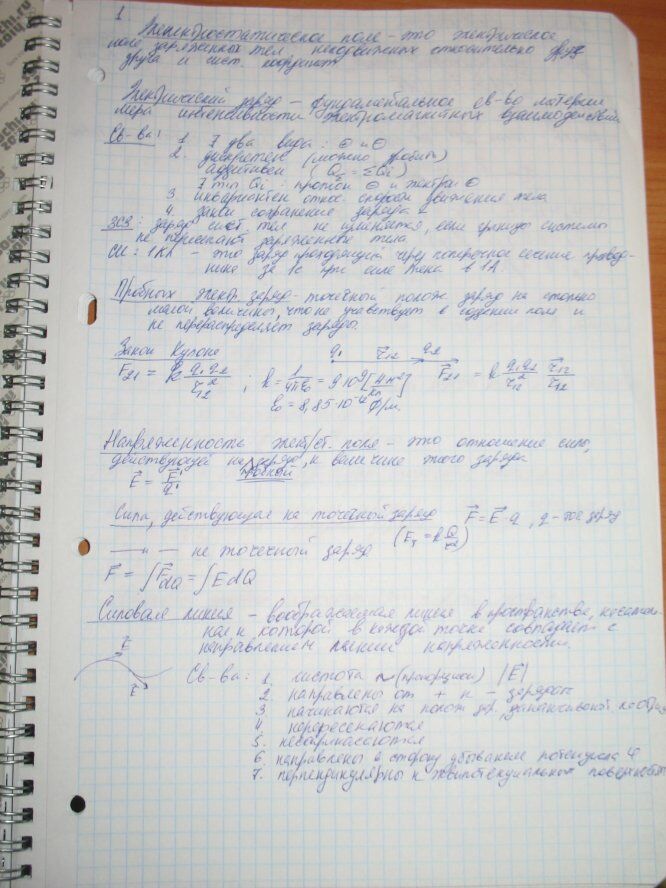 1
Электростатическое поле - это электрическое
поле заряженных тел, неподвижных относительно друг
друга и сист. координат
Электрический заряд - фундаментальное св-во материи
мера интенсивности электромагнитных взаимодействий
Св-ва: 1. ∃ два вида: ⊕ и ⊖
2. дискретен (можно дробить)
аддитивен (Q = ΣQi)
∃ min Qi: протон ⊕ и электрон ⊖
3. инвариантен относ. скорости движения тела
4. закон сохранения заряда
ЗСЗ: заряд сист. тел не изменяется, если границы системы
не пересекают заряженные тела
СИ: 1Кл - это заряд проходящий через поперечное сечение провод-
ника за 1с при силе тока в 1А
Пробный электр. заряд - точечный полож. заряд на столько
малой величины, что не участвует в создании поля и
не перераспределяет заряды.
Закон Кулона q1 r12 q2
F21 = k q1q2/r12² ; k = 1/4πε0 = 9·10⁹ [Н м²/Кл²] F⃗21 = k q1q2/r12² r⃗12/r12
ε0 = 8,85·10⁻¹² Ф/м.
Напряженность элект/ст. поля - это отношение силы,
действующей на пробный заряд, к величине этого заряда
E⃗ = F⃗/q
Сила, действующая на точечный заряд F⃗ = E⃗·q, q - заряд
—— " — не точечный заряд (Eт = k Q/r²)
F⃗ = ∫F⃗dQ = ∫EdQ
Силовая линия - воображаемая линия в пространстве, касатель-
ная к которой в каждой точке совпадает с
направлением линии напряженности
E⃗ E⃗
Св-ва: 1. густота ~ (пропорцион) |E⃗|
2. направлены от + к - зарядам
3. начинаются на полож. зар., заканчиваются на
4.
5.
6. направлены в сторону убывания потенциала φ
7. перпендикулярны к эквипотенциальным поверхностям